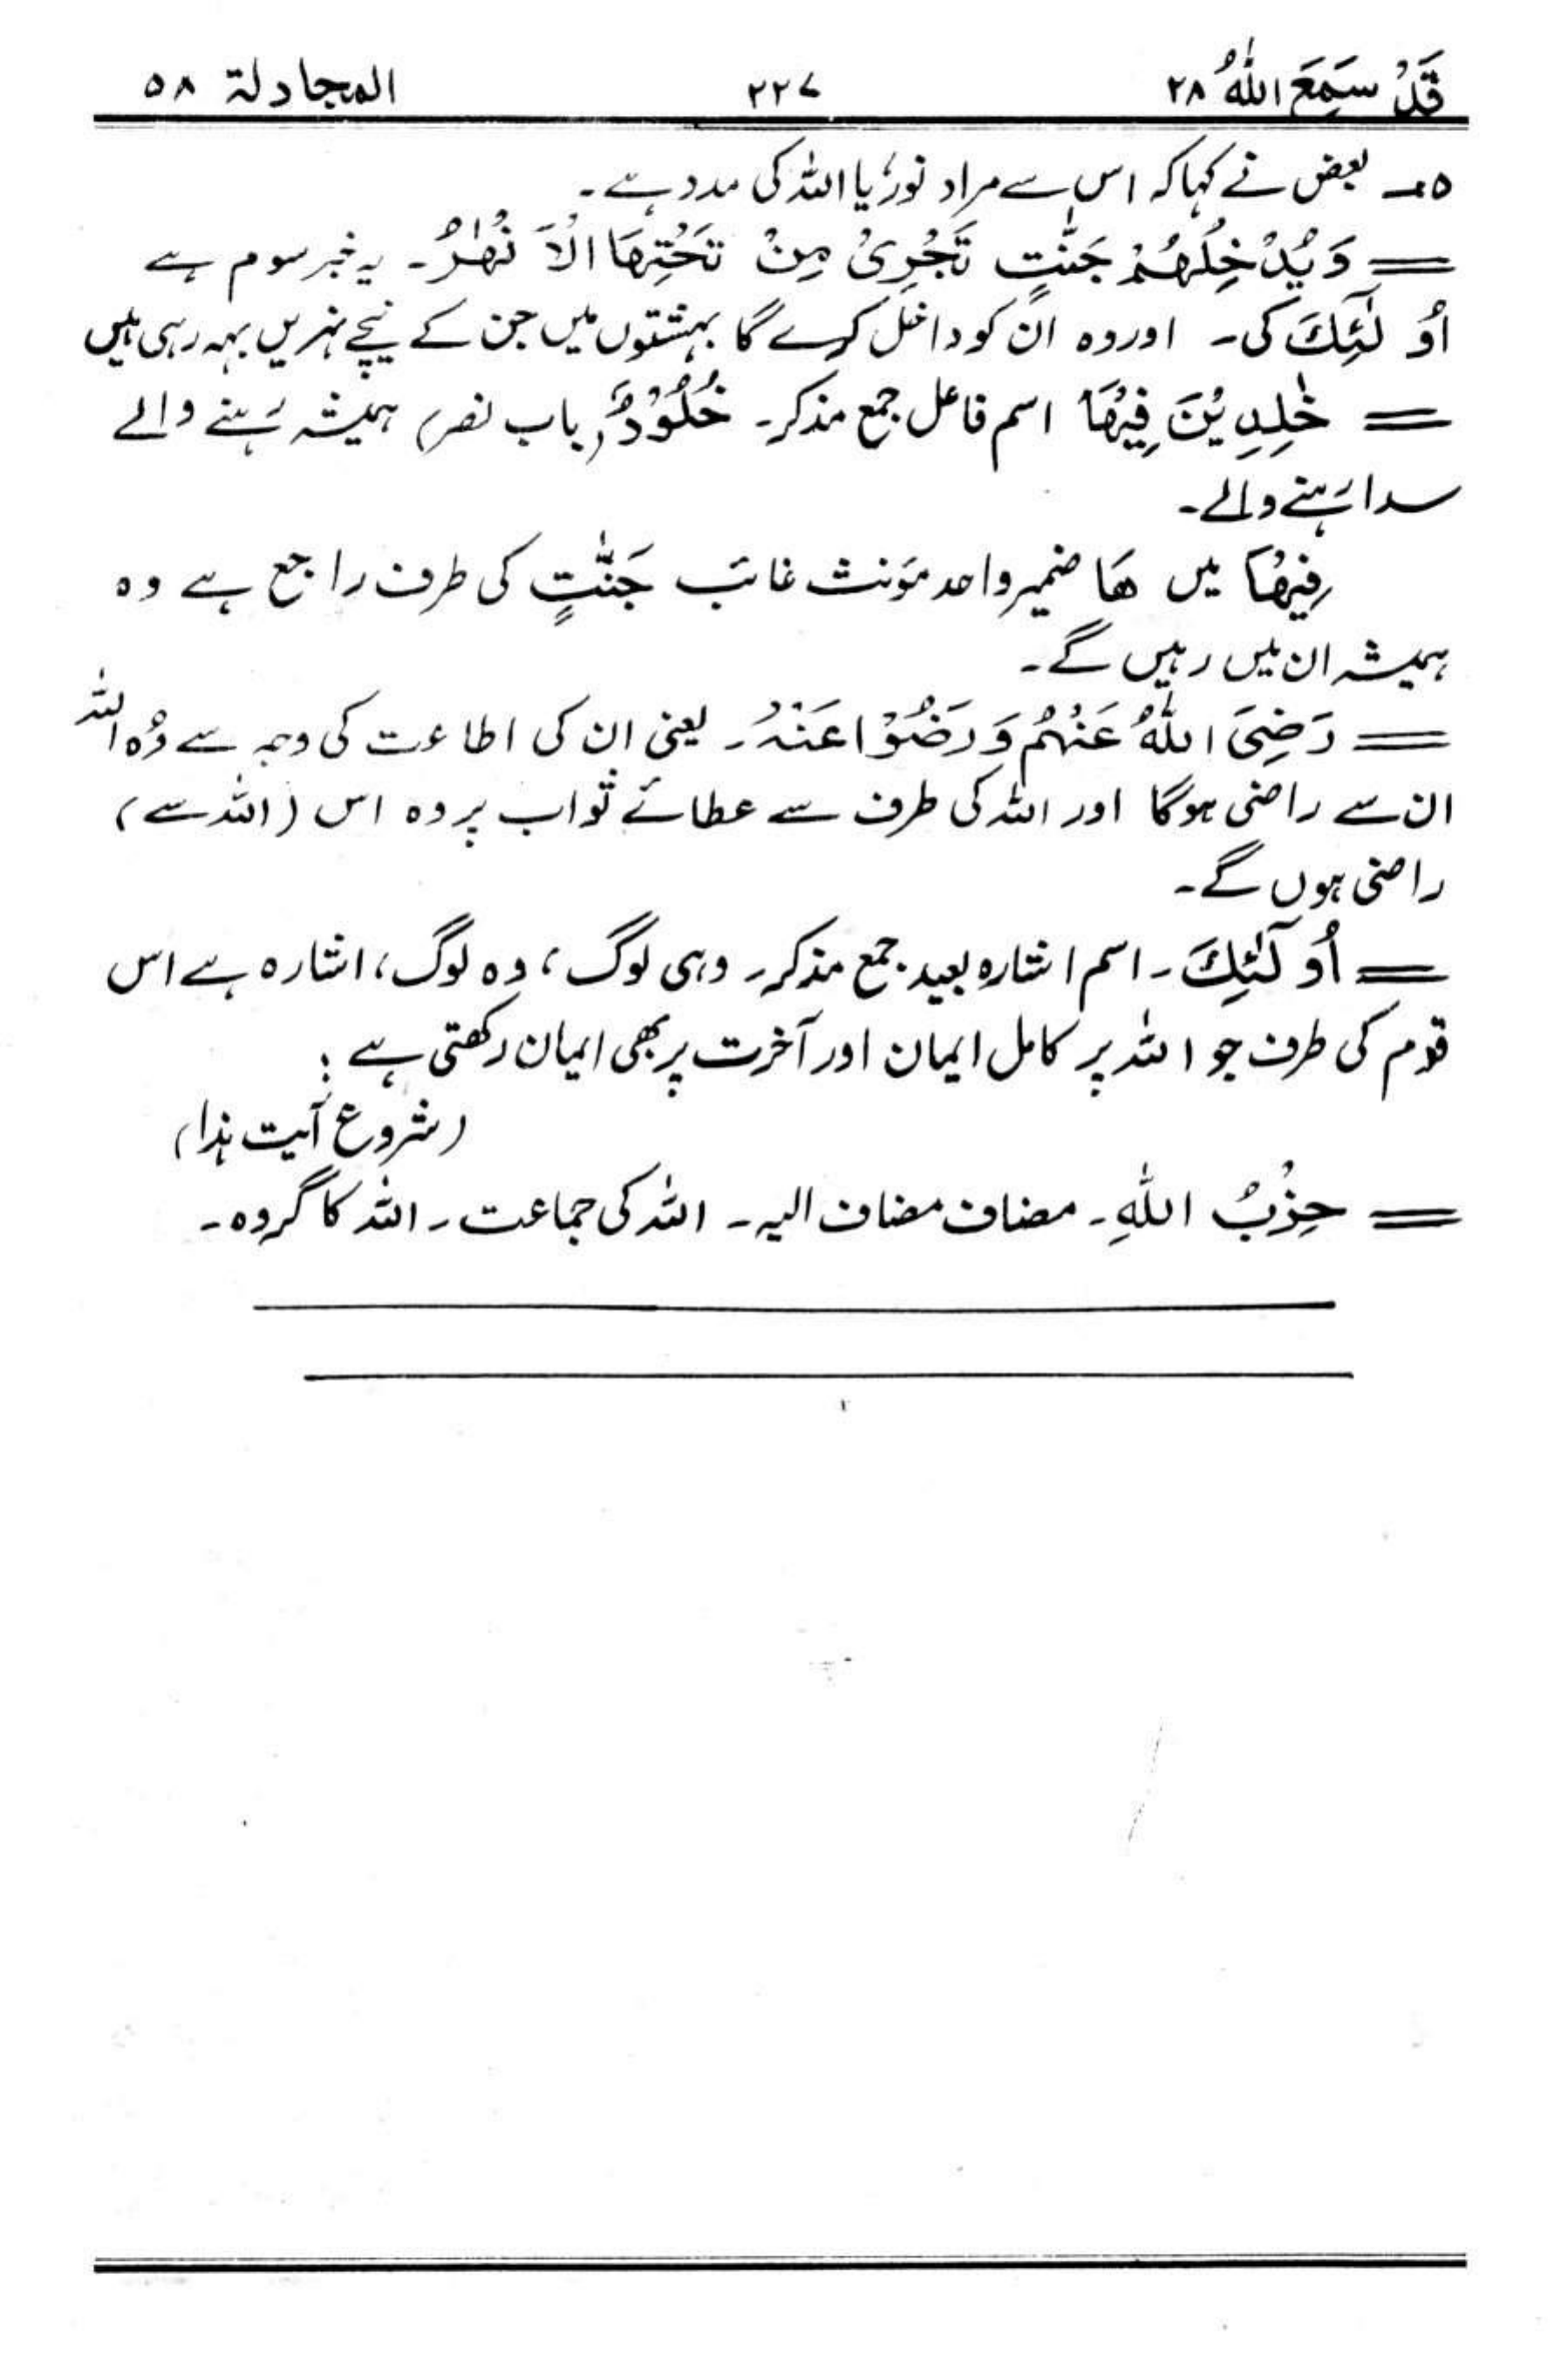 قَدْ سَمِعَ اللّٰهُ ۲۸ ۲۲۷ المجادلة ۵۸
۵۔ بعض نے کہا کہ اس سے مراد نور، یا اللہ کی مدد ہے۔
== وَيُدْخِلُهُمْ جَنّٰتٍ تَجْرِیْ مِنْ تَحْتِهَا الْاَنْهٰرُ۔ یہ خبر سوم ہے
اُولٰٓئِكَ کی۔ اور وہ ان کو داخل کرے گا بہشتوں میں جن کے نیچے نہریں بہہ رہی ہیں
== خٰلِدِيْنَ فِيْهَا اسم فاعل جمع مذکر۔ خُلُوْدٌ (باب نصر) ہمیشہ رہنے والے
سدا رہنے والے۔
فِيْهَا میں ھَا ضمیر واحد مؤنث غائب جَنّٰتٍ کی طرف راجع ہے وہ
ہمیشہ ان میں رہیں گے۔
== رَضِیَ اللّٰهُ عَنْهُمْ وَرَضُوْا عَنْهُ۔ یعنی ان کی اطاعت کی وجہ سے وہ اللہ
ان سے راضی ہوگا اور اللہ کی طرف سے عطائے ثواب پر وہ اس (اللہ سے)
راضی ہوں گے۔
== اُولٰٓئِكَ۔ اسم اشارہ بعید جمع مذکر۔ وہی لوگ، وہ لوگ، اشارہ ہے اس
قوم کی طرف جو اللہ پر کامل ایمان اور آخرت پر بھی ایمان رکھتی ہے :
(شروع آیت ہذا)
== حِزْبُ اللّٰهِ۔ مضاف مضاف الیہ۔ اللہ کی جماعت۔ اللہ کا گروہ۔